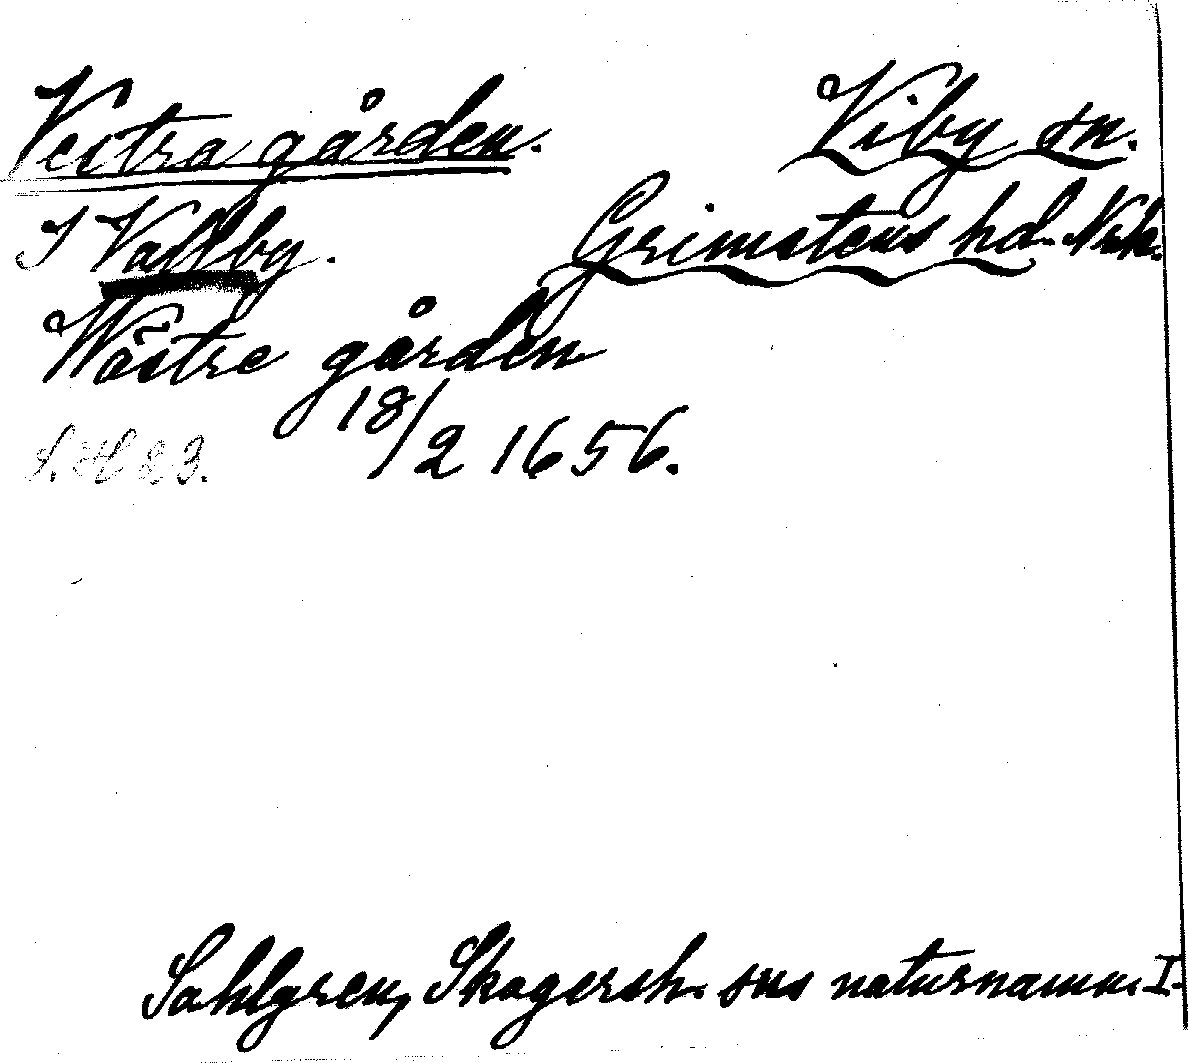 Vestra gården.
Viby sn.
I Vallby.
Grimstens hd. Närk.
Wästre gården
18/2 1656.
S. H 23.
Sahlgren, Skagersh. sns naturnamn. I.